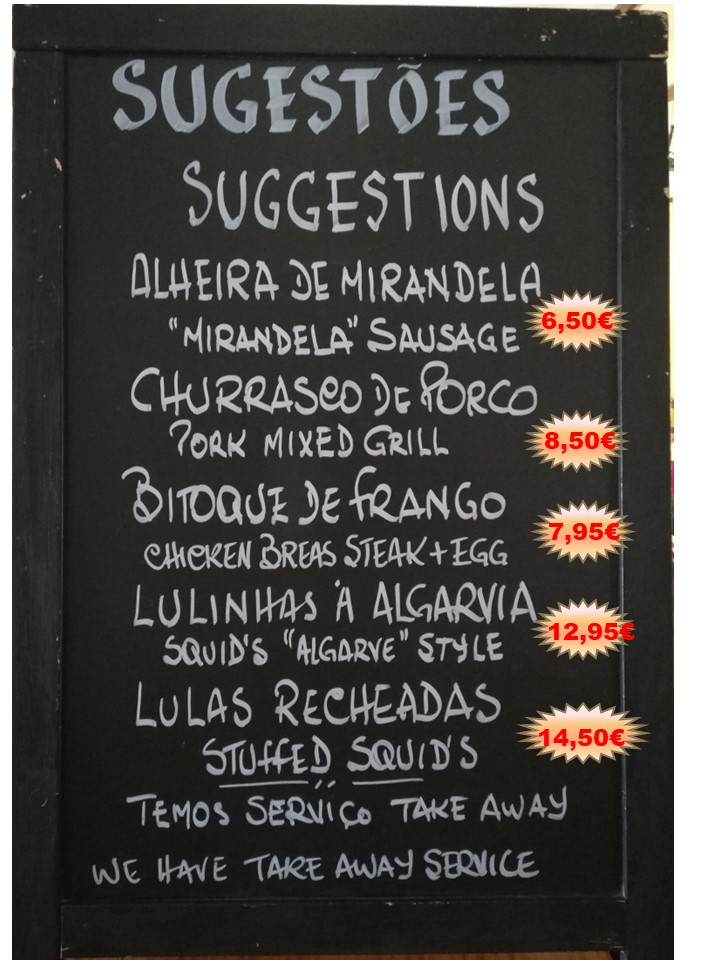 SUGESTÕES
SUGGESTIONS
ALHEIRA DE MIRANDELA
"MIRANDELA" SAUSAGE 6,50€
CHURRASCO DE PORCO
PORK MIXED GRILL 8,50€
BITOQUE DE FRANGO
CHICKEN BREAS STEAK + EGG 7,95€
LULINHAS À ALGARVIA
SQUID'S "ALGARVE" STYLE 12,95€
LULAS RECHEADAS
STUFFED SQUID'S 14,50€
TEMOS SERVIÇO TAKE AWAY
WE HAVE TAKE AWAY SERVICE